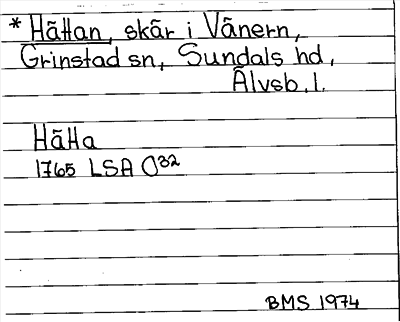 * Hättan, skär i Vänern,
Grinstad sn, Sundals hd,
Älvsb. l.
Hätta
1765 LSA O32
BMS 1974